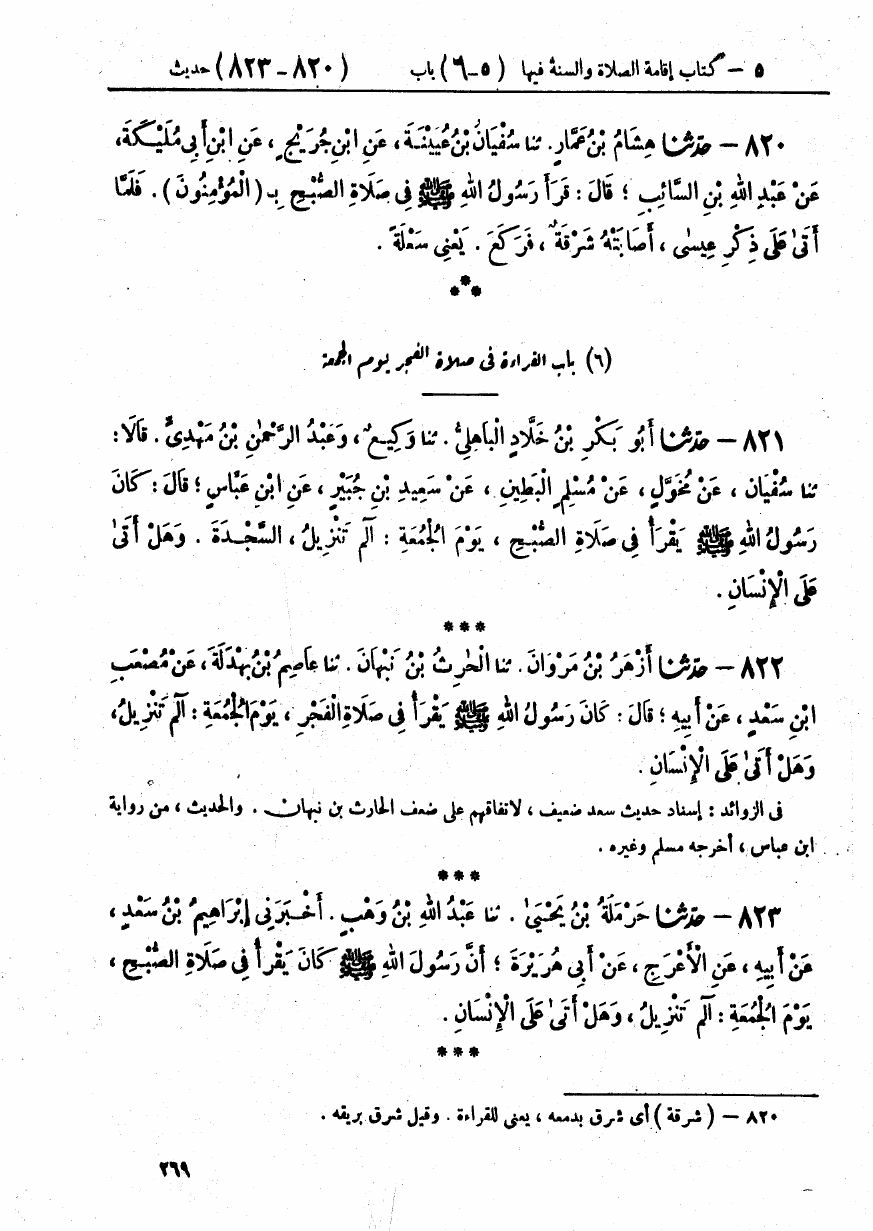 ٥ – كتاب إقامة الصلاة والسنة فيها (٥–٦) باب (٨٢٠–٨٢٣) حديث
٨٢٠ – حَدَّثَنَا هِشَامُ بْنُ عَمَّارٍ. ثنا سُفْيَانُ بْنُ عُيَيْنَةَ، عَنِ ابْنِ جُرَيْجٍ، عَنِ ابْنِ أَبِي مُلَيْكَةَ،
عَنْ عَبْدِ اللهِ بْنِ السَّائِبِ ؛ قَالَ : قَرَأَ رَسُولُ اللهِ ﷺ فِي صَلَاةِ الصُّبْحِ بِـ (الْمُؤْمِنُونَ) . فَلَمَّا
أَتَىٰ عَلَى ذِكْرِ عِيسٰى ، أَصَابَتْهُ شَرْقَةٌ ، فَرَكَعَ . يَعْنِي سَعْلَةً .
***
(٦) باب القراءة فى صلاة الفجر يوم الجمعة
٨٢١ – حَدَّثَنَا أَبُو بَكْرِ بْنُ خَلَّادٍ الْبَاهِلِيُّ. ثنا وَكِيعٌ ، وَعَبْدُ الرَّحْمٰنِ بْنُ مَهْدِيٍّ . قَالَا :
ثنا سُفْيَان ، عَنْ مُخَوَّلٍ ، عَنْ مُسْلِمٍ الْبَطِينِ ، عَنْ سَعِيدِ بْنِ جُبَيْرٍ ، عَنِ ابْنِ عَبَّاسٍ ؛ قَالَ : كَانَ
رَسُولُ اللهِ ﷺ يَقْرَأُ فِي صَلَاةِ الصُّبْحِ ، يَوْمَ الْجُمُعَةِ : آلٓم تَنْزِيلُ ، السَّجْدَةَ . وَهَلْ أَتَىٰ
عَلَى الْإِنْسَانِ .
***
٨٢٢ – حَدَّثَنَا أَزْهَرُ بْنُ مَرْوَانَ . ثنا الْحٰرِثُ بْنُ نَبْهَانَ . ثنا عَاصِمُ بْنُ بَهْدَلَةَ ، عَنْ مُصْعَبِ
ابْنِ سَعْدٍ ، عَنْ أَبِيهِ ؛ قَالَ : كَانَ رَسُولُ اللهِ ﷺ يَقْرَأُ فِي صَلَاةِ الْفَجْرِ ، يَوْمَ الْجُمُعَةِ : آلٓم تَنْزِيلُ ،
وَهَلْ أَتَىٰ عَلَى الْإِنْسَانِ .
فى الزوائد : إسناد حديث سعد ضعيف ، لاتفاقهم على ضعف الحارث بن نبهان . والحديث ، من رواية
ابن عباس ، أخرجه مسلم وغيره .
***
٨٢٣ – حَدَّثَنَا حَرْمَلَةُ بْنُ يَحْيَىٰ . ثنا عَبْدُ اللهِ بْنُ وَهْبٍ . أَخْبَرَنِي إِبْرَاهِيمُ بْنُ سَعْدٍ ،
عَنْ أَبِيهِ ، عَنِ الْأَعْرَجِ ، عَنْ أَبِي هُرَيْرَةَ ؛ أَنَّ رَسُولَ اللهِ ﷺ كَانَ يَقْرَأُ فِي صَلَاةِ الصُّبْحِ ،
يَوْمَ الْجُمُعَةِ : آلٓم تَنْزِيلُ ، وَهَلْ أَتَىٰ عَلَى الْإِنْسَانِ .
***
٨٢٠ – (شرقة) أى شرق بدمعه ، يعنى للقراءة . وقيل شرق بريقه .
٢٦٩